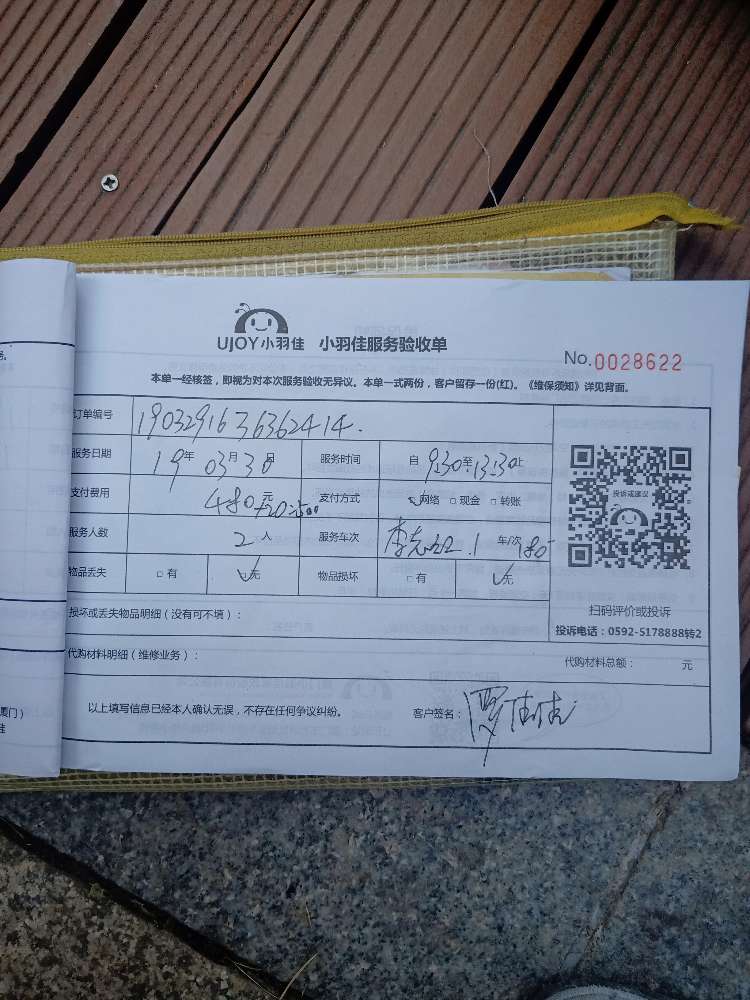 UJOY小羽佳 小羽佳服务验收单
No.0028622
本单一经核签，即视为对本次服务验收无异议。本单一式两份，客户留存一份(红)。《维保须知》详见背面。
订单编号 1903291636362414.
服务日期 19年03月30日 服务时间 自9:30至13:30止
支付费用 480元+20=500 支付方式 ☑网络 □现金 □转账
投诉或建议
服务人数 2人 服务车次 1车/次 180
物品丢失 □有 ☑无 物品损坏 □有 ☑无
扫码评价或投诉
损坏或丢失物品明细（没有可不填）：
投诉电话：0592-5178888转2
代购材料明细（维修业务）： 代购材料总额： 元
以上填写信息已经本人确认无误，不存在任何争议纠纷。 客户签名：
厦门）